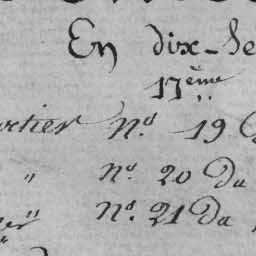 En dix-Se
17ème
rtier N.º 19
" N.º 20 Du
" N.º 21 Du